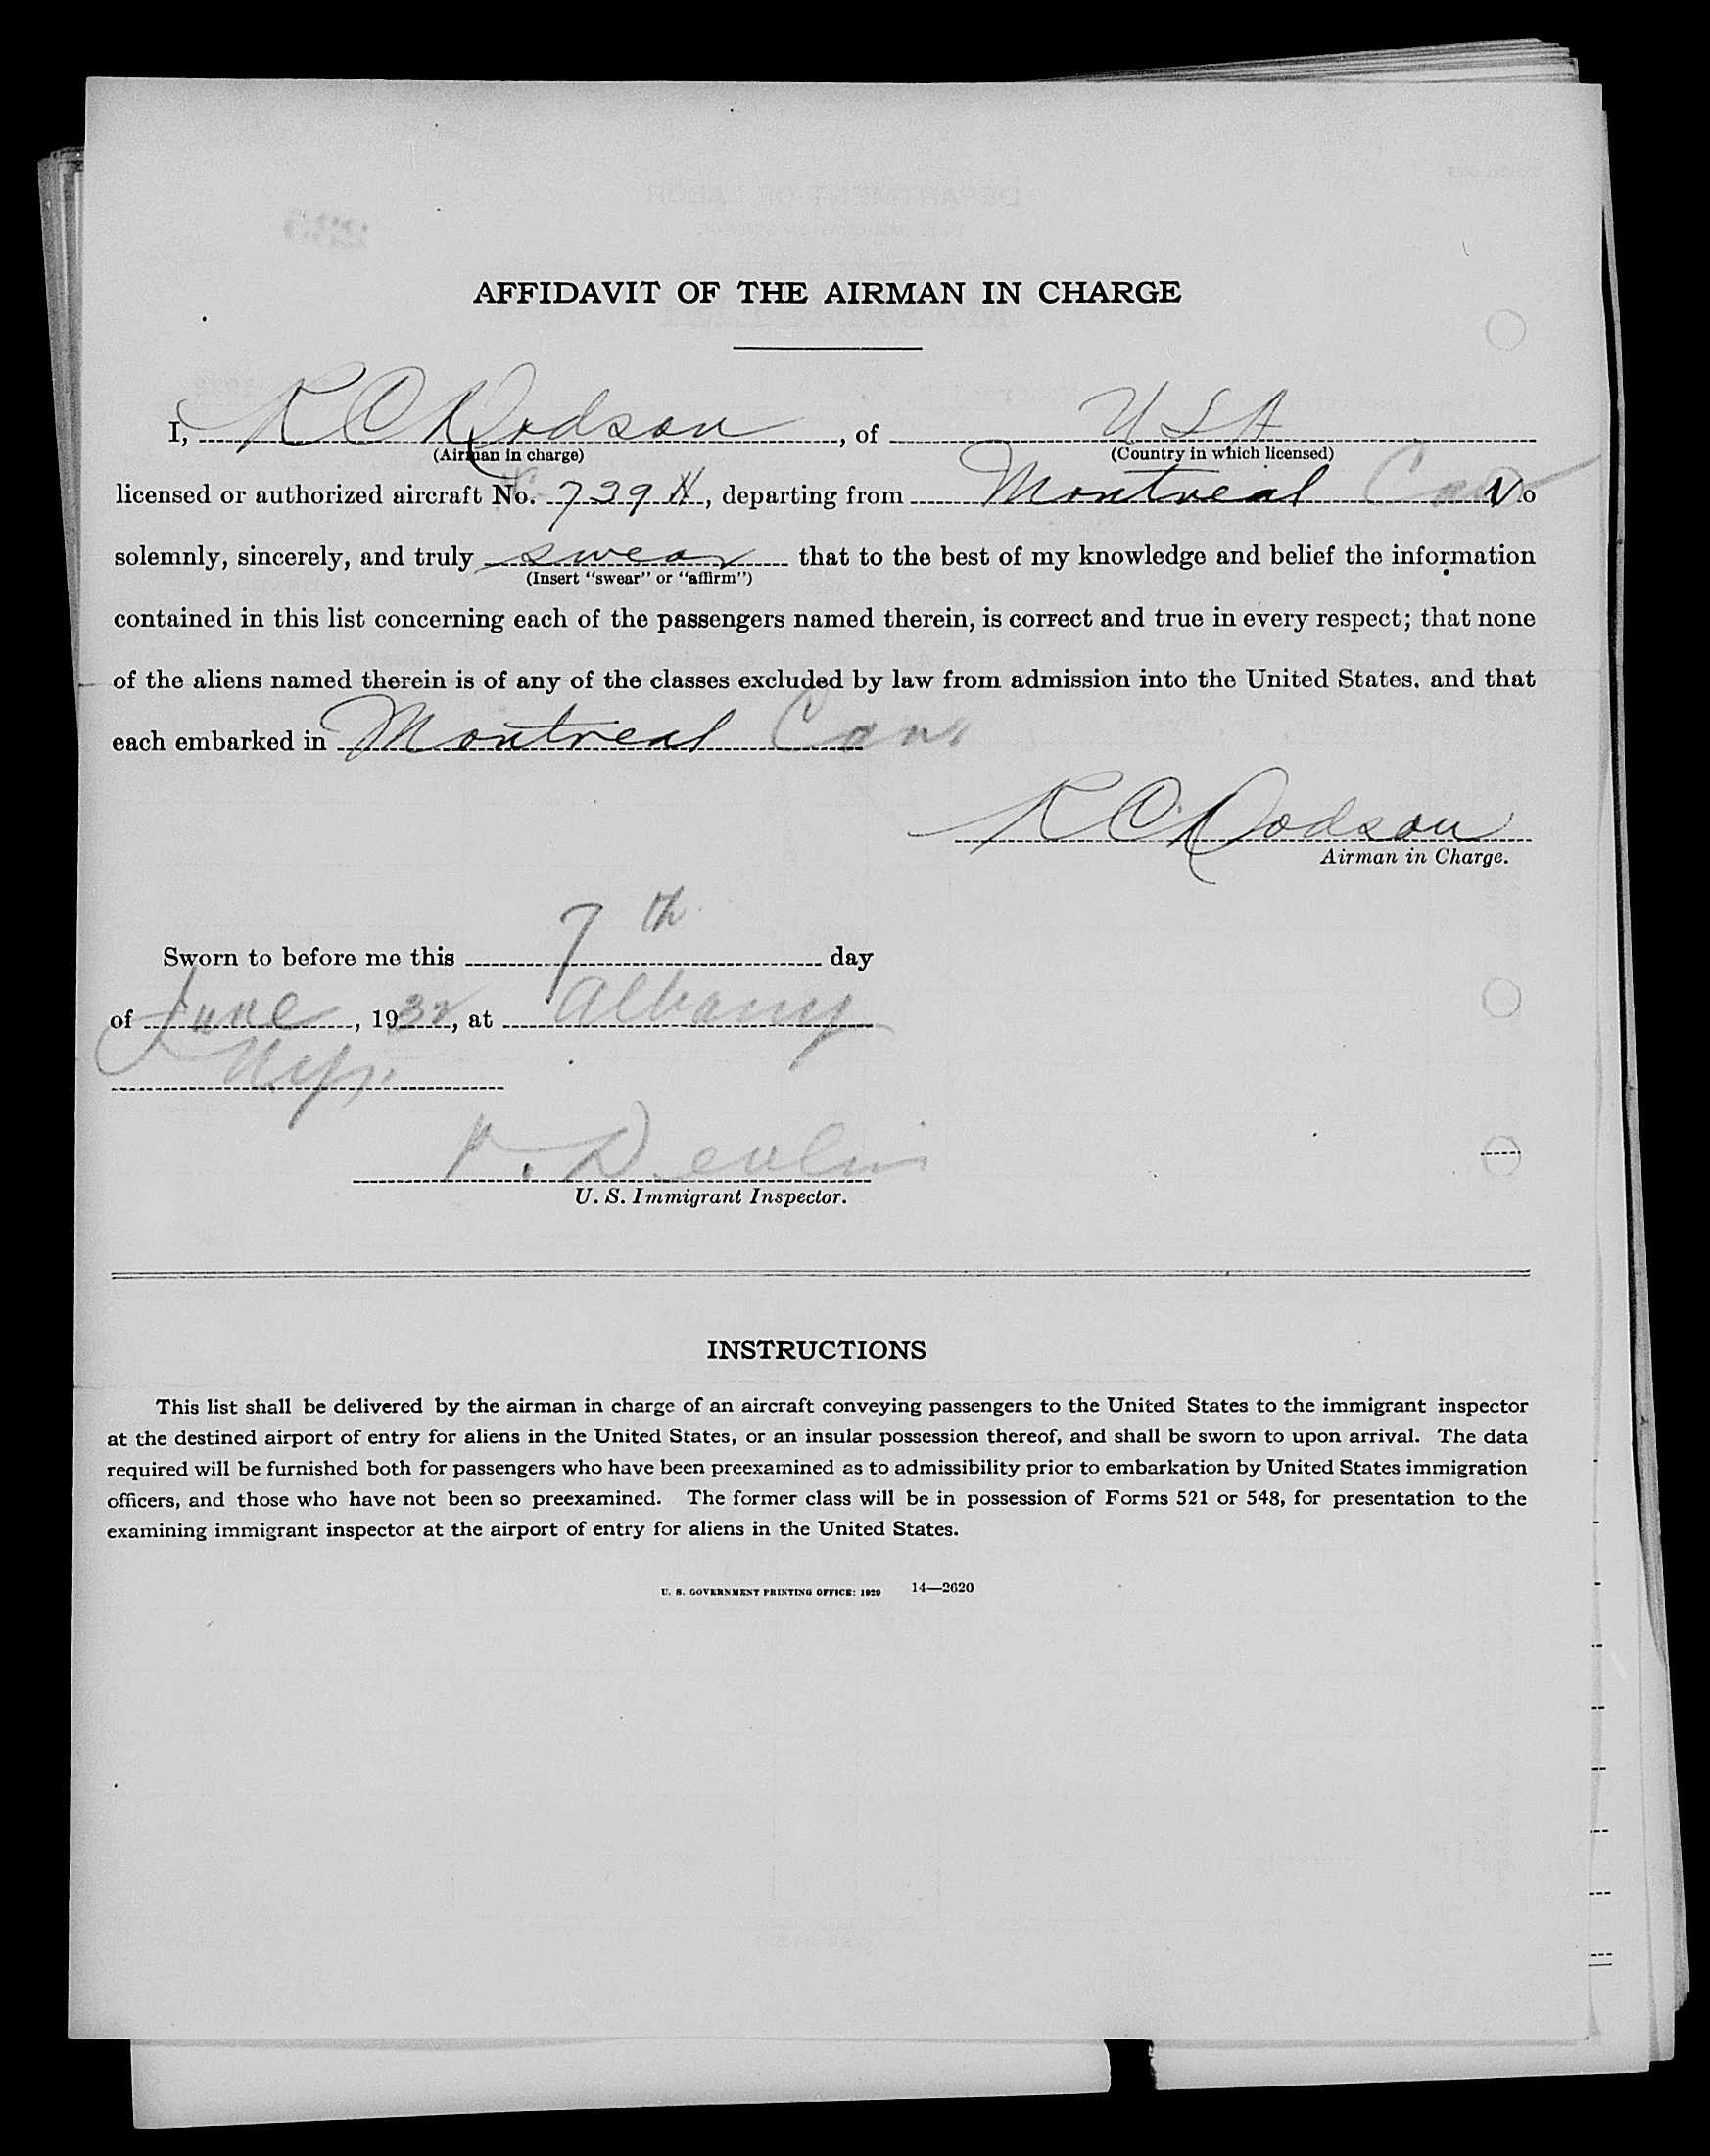 AFFIDAVIT OF THE AIRMAN IN CHARGE
I, R C Dodson, of U S A
(Airman in charge) (Country in which licensed)
licensed or authorized aircraft No. 729 H, departing from Montreal Can do
solemnly, sincerely, and truly swear that to the best of my knowledge and belief the information
(Insert "swear" or "affirm")
contained in this list concerning each of the passengers named therein, is correct and true in every respect; that none
of the aliens named therein is of any of the classes excluded by law from admission into the United States, and that
each embarked in Montreal Can
R C Dodson
Airman in Charge.
Sworn to before me this 7th day
of June, 1932, at Albany
N.Y.
Devlin
U. S. Immigrant Inspector.
INSTRUCTIONS
This list shall be delivered by the airman in charge of an aircraft conveying passengers to the United States to the immigrant inspector
at the destined airport of entry for aliens in the United States, or an insular possession thereof, and shall be sworn to upon arrival. The data
required will be furnished both for passengers who have been preexamined as to admissibility prior to embarkation by United States immigration
officers, and those who have not been so preexamined. The former class will be in possession of Forms 521 or 548, for presentation to the
examining immigrant inspector at the airport of entry for aliens in the United States.
U. S. GOVERNMENT PRINTING OFFICE: 1929 14—2620